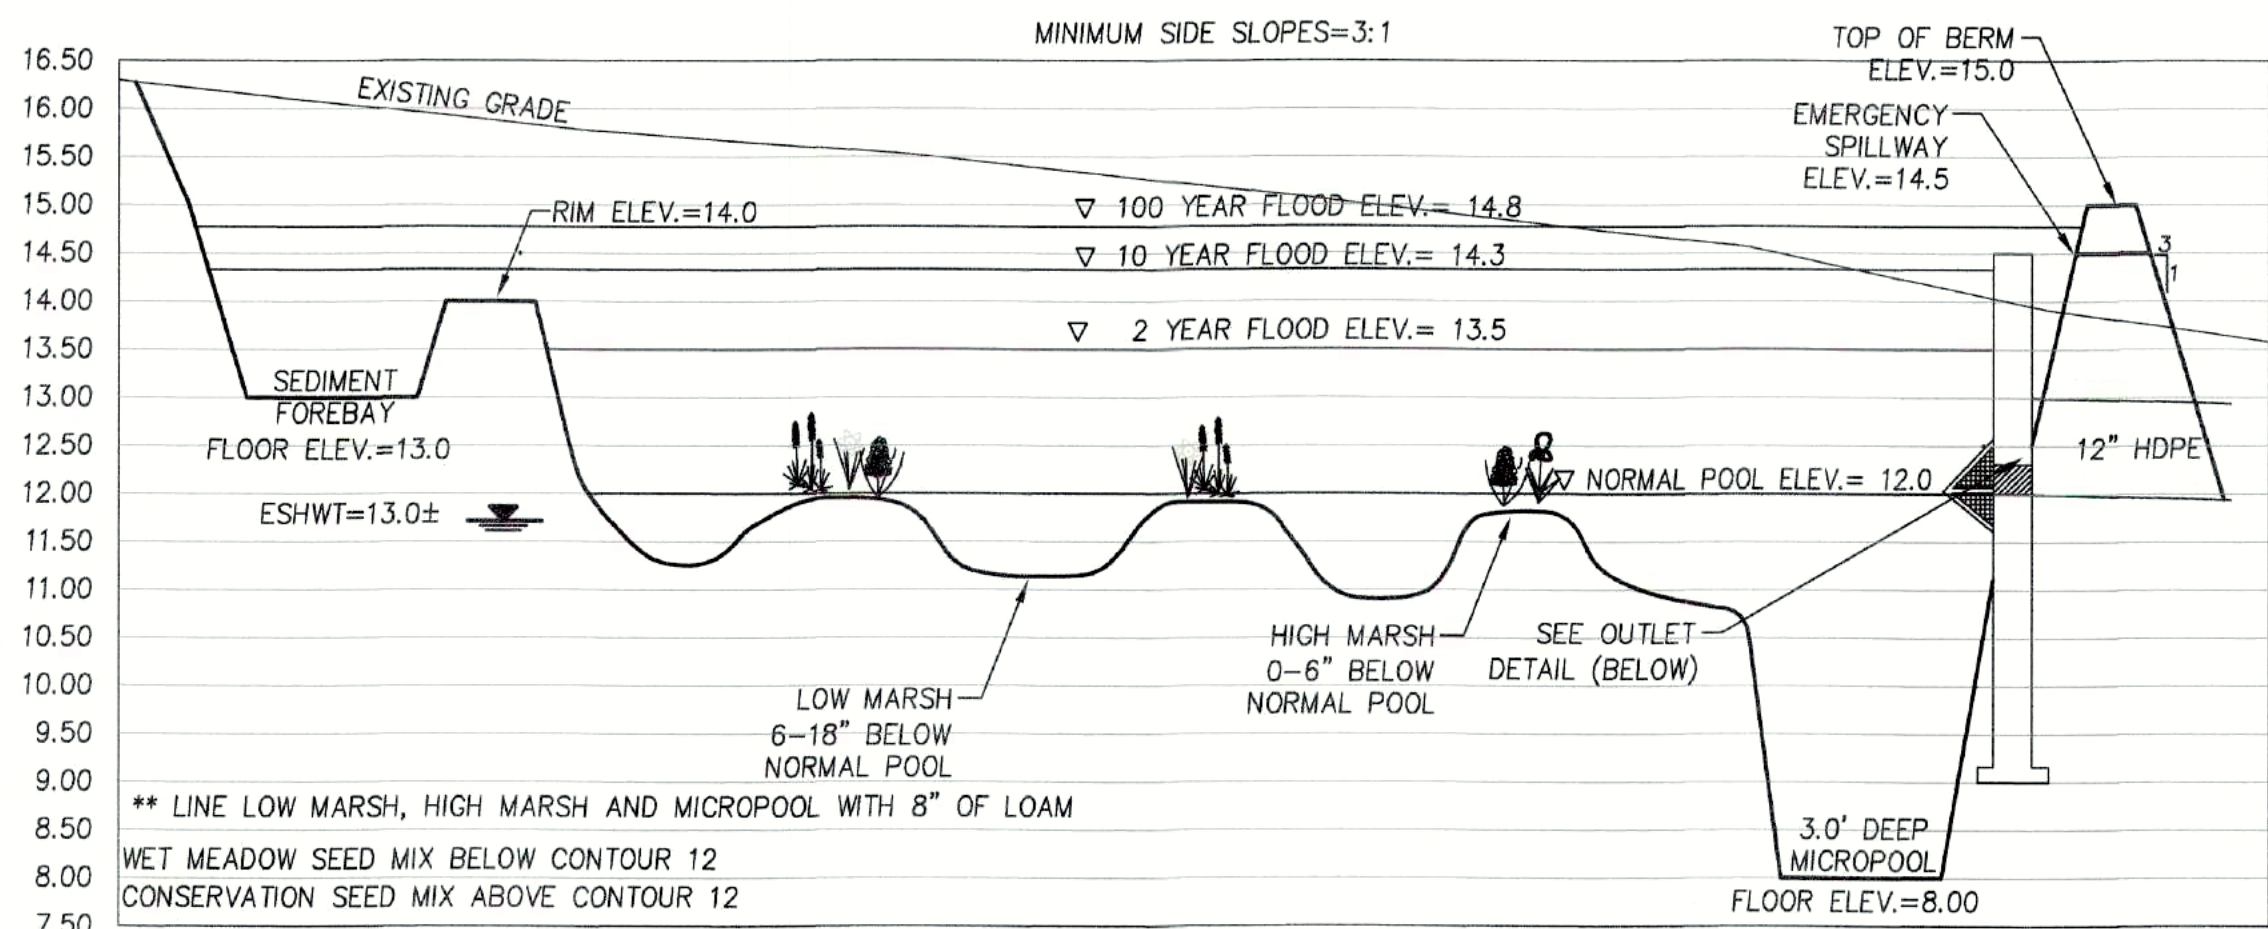 MINIMUM SIDE SLOPES=3:1
TOP OF BERM
ELEV.=15.0
EMERGENCY
SPILLWAY
ELEV.=14.5
16.50
16.00
15.50
15.00
14.50
14.00
13.50
13.00
12.50
12.00
11.50
11.00
10.50
10.00
9.50
9.00
8.50
8.00
7.50
EXISTING GRADE
RIM ELEV.=14.0
100 YEAR FLOOD ELEV.= 14.8
10 YEAR FLOOD ELEV.= 14.3
2 YEAR FLOOD ELEV.= 13.5
3
1
SEDIMENT
FOREBAY
FLOOR ELEV.=13.0
ESHWT=13.0±
NORMAL POOL ELEV.= 12.0
12" HDPE
LOW MARSH
6-18" BELOW
NORMAL POOL
HIGH MARSH
0-6" BELOW
NORMAL POOL
SEE OUTLET
DETAIL (BELOW)
** LINE LOW MARSH, HIGH MARSH AND MICROPOOL WITH 8" OF LOAM
WET MEADOW SEED MIX BELOW CONTOUR 12
CONSERVATION SEED MIX ABOVE CONTOUR 12
3.0' DEEP
MICROPOOL
FLOOR ELEV.=8.00